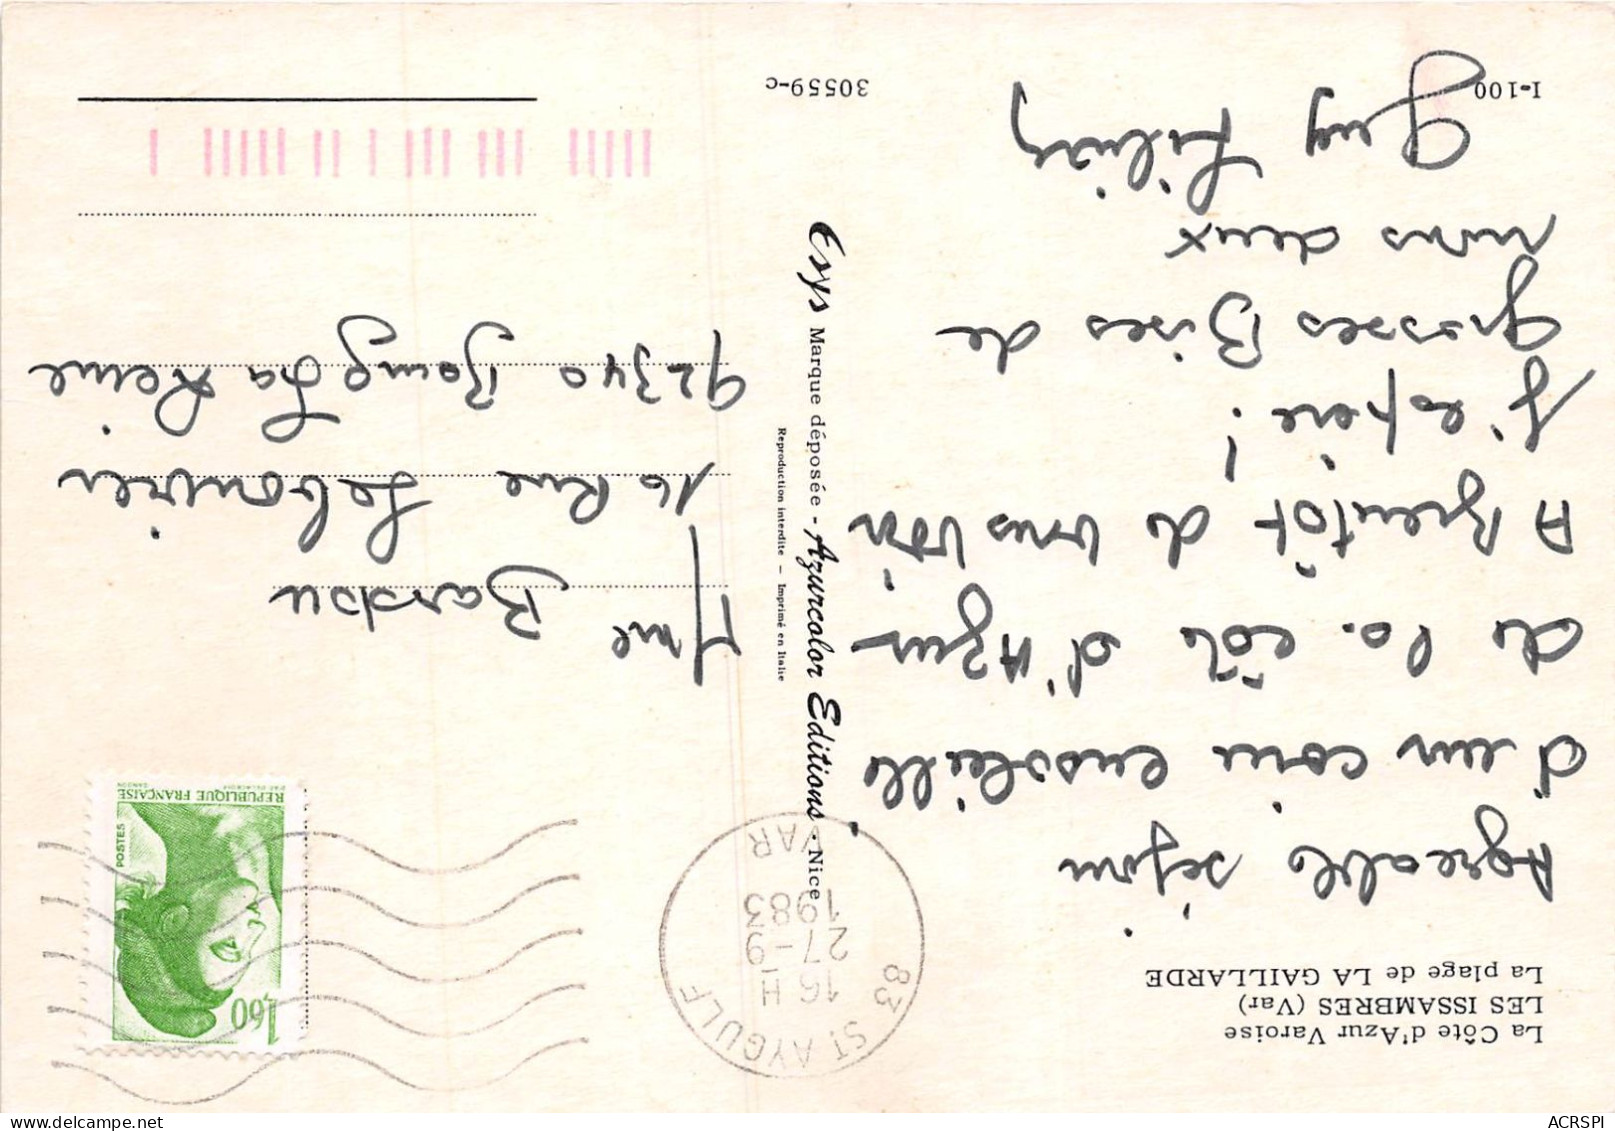 La Côte d'Azur Varoise
LES ISSAMBRES (Var)
La plage de LA GAILLARDE
Agreable séjour
d'un coin ensoleillé
de la côte d'Azur
A Bientôt de vous voir
j'espère !
grosses Bises de
nous deux
Guy
I-100
30559-c
Esys Marque déposée - Azurcolor Editions - Nice
Reproduction interdite — Imprimé en Italie
83 ST AYGULF
16 H
27-9
1983
VAR
1,60
POSTES
REPUBLIQUE FRANÇAISE
D'AP. DELACROIX
GANDON
Mme Bardou
16 Rue Lebouvier
92340 Bourg La Reine
ACRSPI